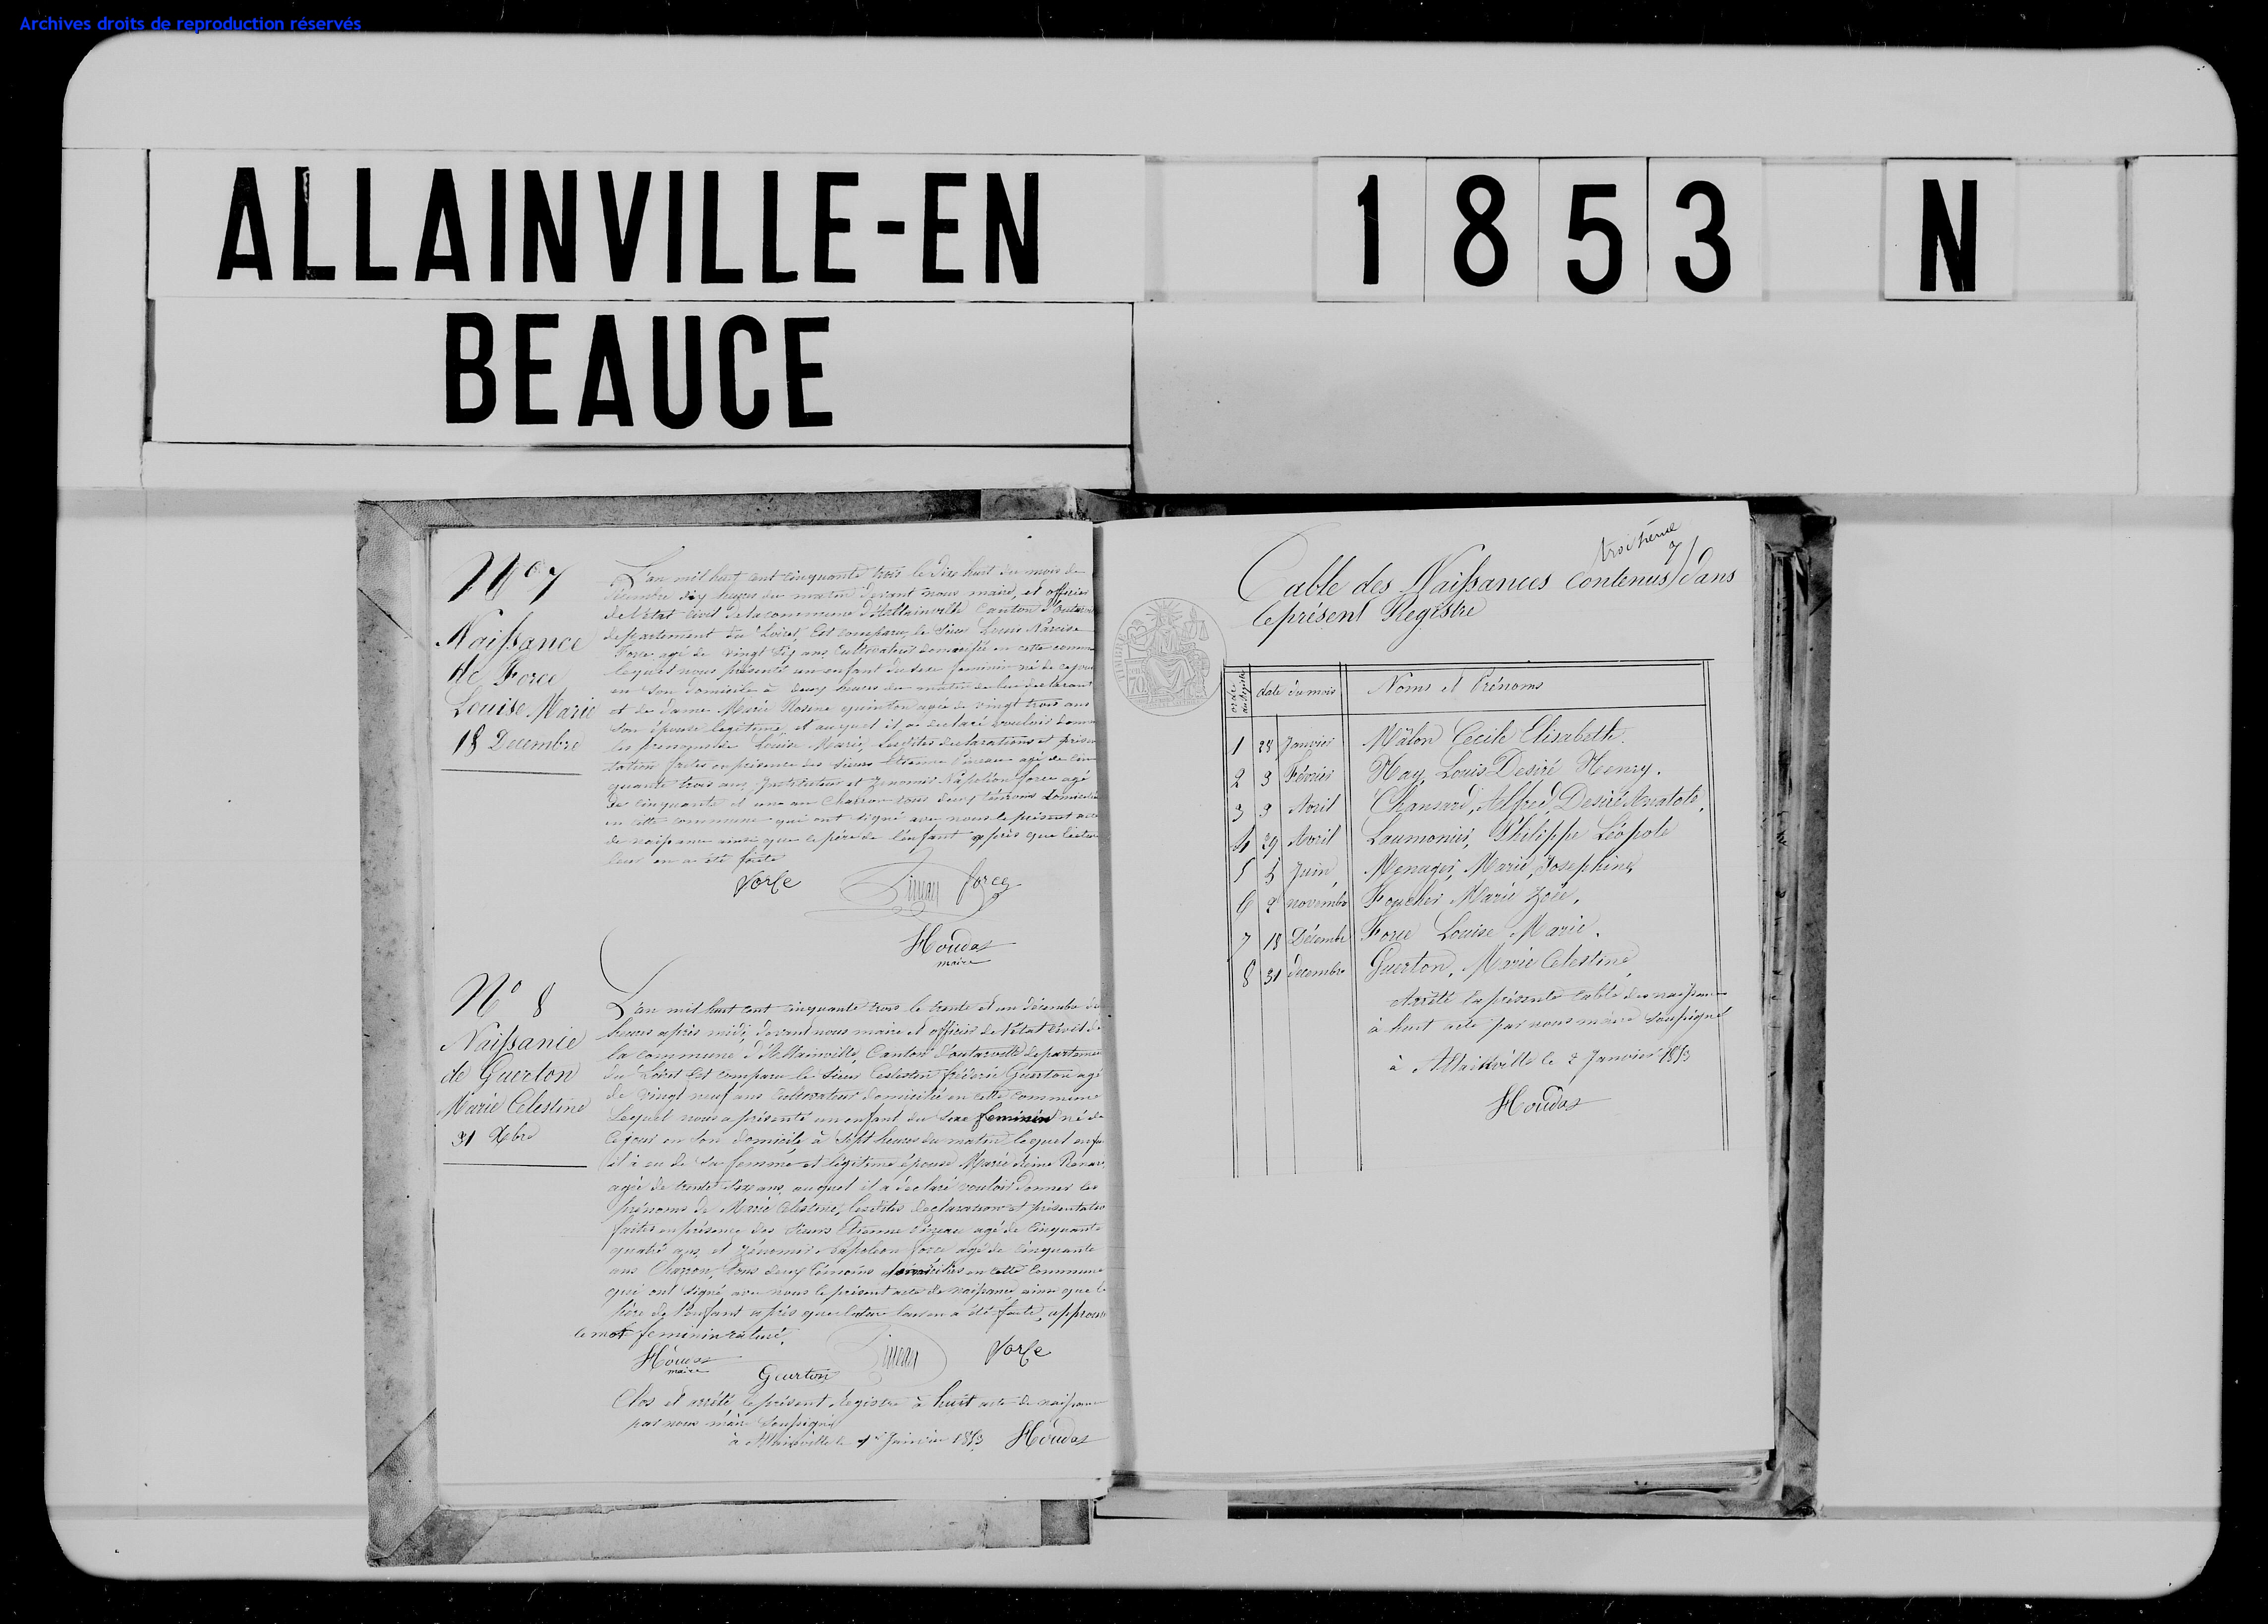 Archives droits de reproduction réservés
ALLAINVILLE-EN
BEAUCE
1853 N
No 7
Naissance
de Force
Louise Marie
18 Decembre
L'an mil huit cent cinquante trois le dix huit du mois de
décembre dix heures du matin devant nous maire, et officier
de l'état civil de la commune d'Allainville Canton d'Outarville
departement du Loiret, Est comparu le sieur Louis Narcisse
Force agé de vingt six ans Cultivateur domicilié en cette commune
lequel nous présenté un enfant du sexe feminin né de ce jour
en son domicile à deux heures du matin de lui declarant
et de dame Marie Rosine quinton agée de vingt trois ans
son épouse legitime, et auquel il a declaré vouloir donner
les prenoms de Louise Marie, Lesdites declarations et présen
tation faites en présence des sieurs Etienne Pineau agé de cin
quante trois ans, Instituteur et Zenomis Napoléon force agé
de cinquante et un an Charron tous deux témoins domiciliés
en cette commune qui ont signé avec nous le présent acte
de naissance ainsi que le père de l'enfant après que lecture
leur en a été faite
Force
Pineau
force
Houdas
maire
No 8
Naissance
de Guerton
Marie Celestine
31 Xbre
L'an mil huit cent cinquante trois le trente et un décembre
heures après midi, devant nous maire et officier de l'état civil de
la commune d'Allainville, Canton d'outarville departement
du Loiret Est comparu le sieur Celestin fréderic Guerton agé
de vingt neuf ans Cultivateur domicilié en cette commune
Lequel nous a présenté un enfant du sexe feminin né de
ce jour en son domicile à sept heures du matin lequel enfant
il a eu de sa femme et légitime épouse Marie Reine
agée de trente ans, auquel il a declaré vouloir donner les
prénoms de Marie Celestine, lesdites declaration et présentation
faites en présence des sieurs Etienne Pineau agé de cinquante
quatre ans, et Zénomis Napoléon force agé de cinquante
ans Charron, tous deux témoins domiciliés en cette commune
qui ont signé avec nous le présent acte de naissance, ainsi que le
père de l'enfant après que lecture leur en a été faite, approuvé
le mot feminin raturé.
Houdas
maire
Guerton
Pineau
Force
Clos et arrêté, le présent Registre à huit acte de naissance
par nous maire soussigné
à Allainville le 1er Janvier 1853 Houdas
troisième
Table des Naissances Contenus dans
le présent Registre
ordre
du registre
date du mois
Noms et Prénoms
1 28 Janvier Mâlon Cecile Elisabeth.
2 3 Février Hay, Louis Desiré Henry.
3 9 Avril Chansard, Alfred, Desiré Anatole.
4 29 Avril Laumonier, Philippe Léopole
5 5 Juin, Menager, Marie, Josephine,
6 2 novembre Foucher Marie Zoée,
7 18 Décembre Force Louise Marie.
8 31 decembre Guerton, Marie Celestine,
Arrêté la présente table des naissances
à huit acte par nous maire soussigné
à Allainville le 2 Janvier 1853
Houdas